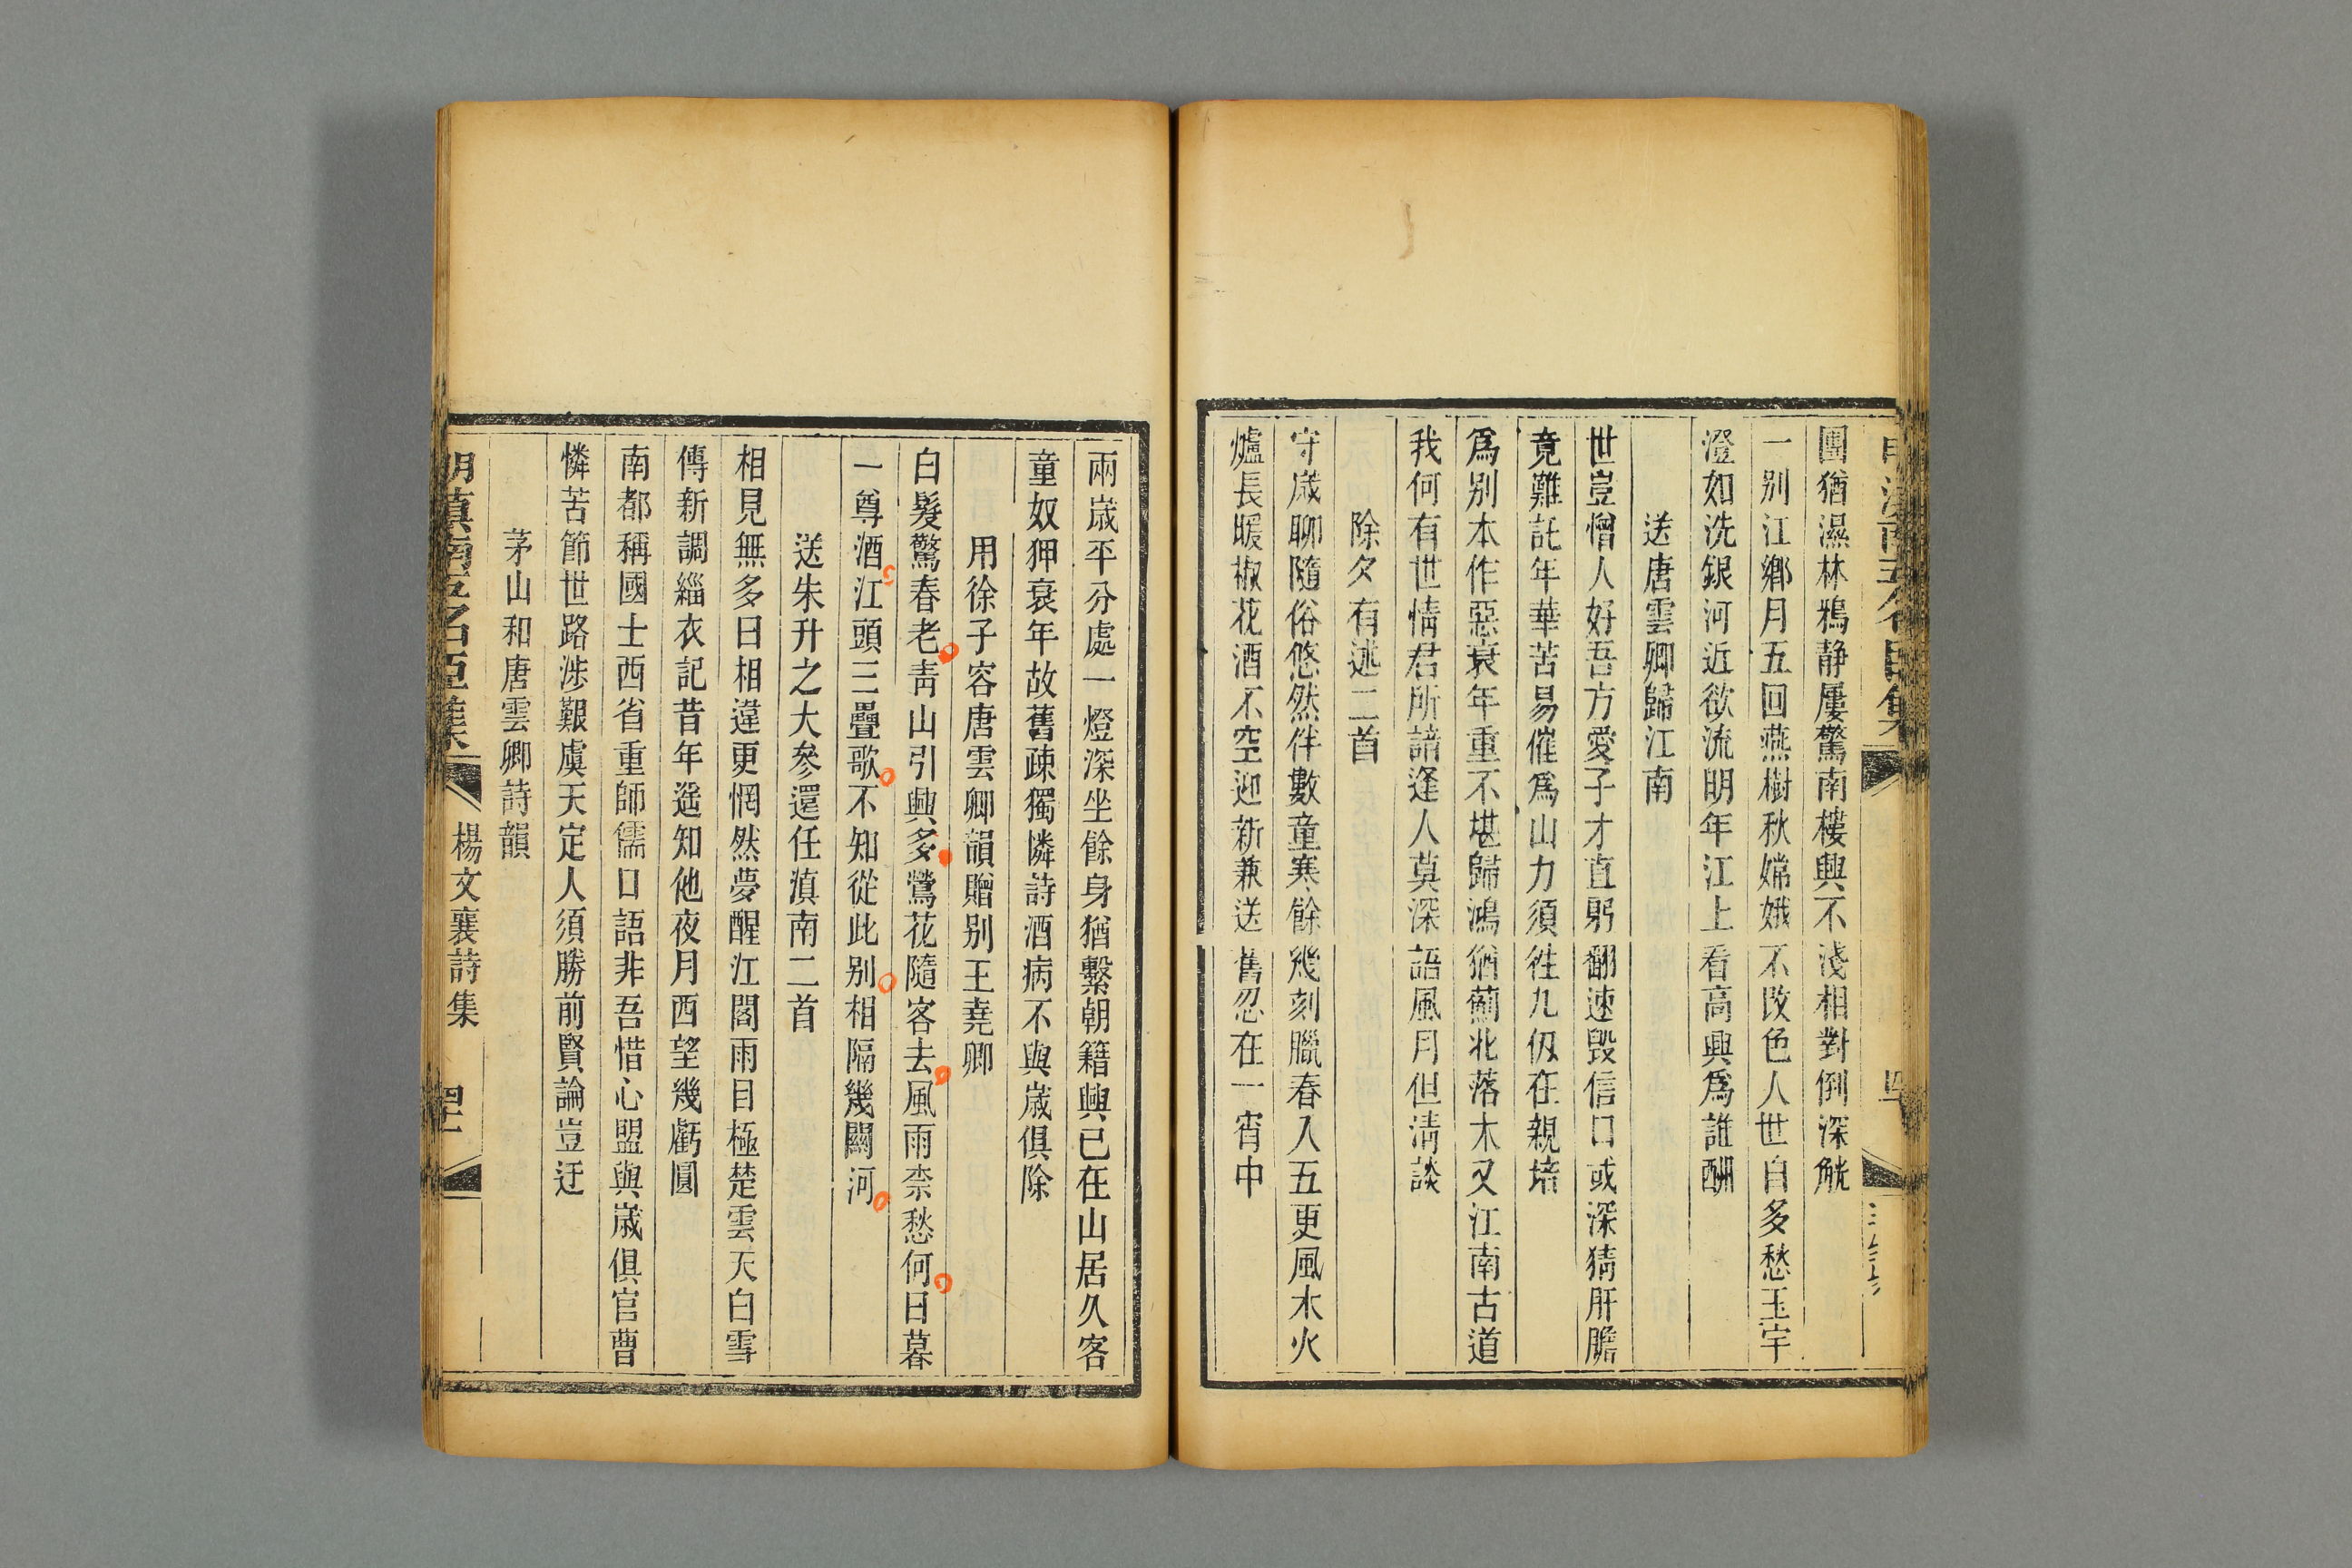 團猶濕林鴉静屢驚南樓興不淺相對倒深觥
一别江鄉月五回燕樹秋嫦娥不改色人世自多愁玉宇
澄如洗銀河近欲流明年江上看高興爲誰酬
送唐雲卿歸江南
世豈憎人好吾方愛子才直躬翻速毀信口或深猜肝膽
竟難託年華苦易催爲山力須徃九仭在親培
爲别本作惡衰年重不堪歸鴻猶薊北落木又江南古道
我何有世情君所諳逢人莫深語風月但淸談
除夕有述二首
守歲聊隨俗悠然伴數童寒餘幾刻臘春入五更風木火
爐長暖椒花酒不空迎新兼送舊忍在一宵中
兩歲平分處一燈深坐餘身猶繫朝籍興已在山居久客
童奴狎衰年故舊疎獨憐詩酒病不與歲俱除
用徐子容唐雲卿韻贈别王堯卿
白髮驚春老靑山引興多鶯花隨客去風雨柰愁何日暮
一尊酒江頭三疊歌不知從此别相隔幾關河
送朱升之大參還任滇南二首
相見無多日相違更惘然夢醒江閣雨目極楚雲天白雪
傳新調緇衣記昔年遥知他夜月西望幾虧圓
南都稱國士西省重師儒口語非吾惜心盟與歲俱官曹
憐苦節世路涉艱虞天定人須勝前賢論豈迂
茅山和唐雲卿詩韻
楊文襄詩集